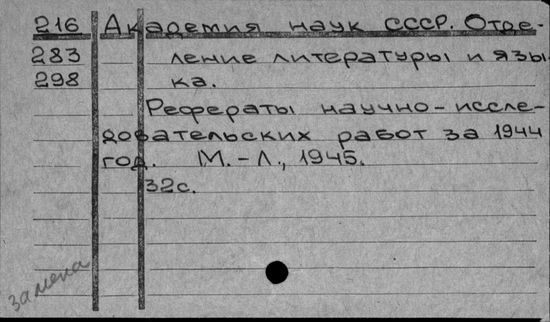 216 Академия наук СССР. Отде-
283 ление литературы и язы-
298 ка.
Рефераты научно-иссле-
довательских работ за 1944
год. М.-Л., 1945.
32с.
замена